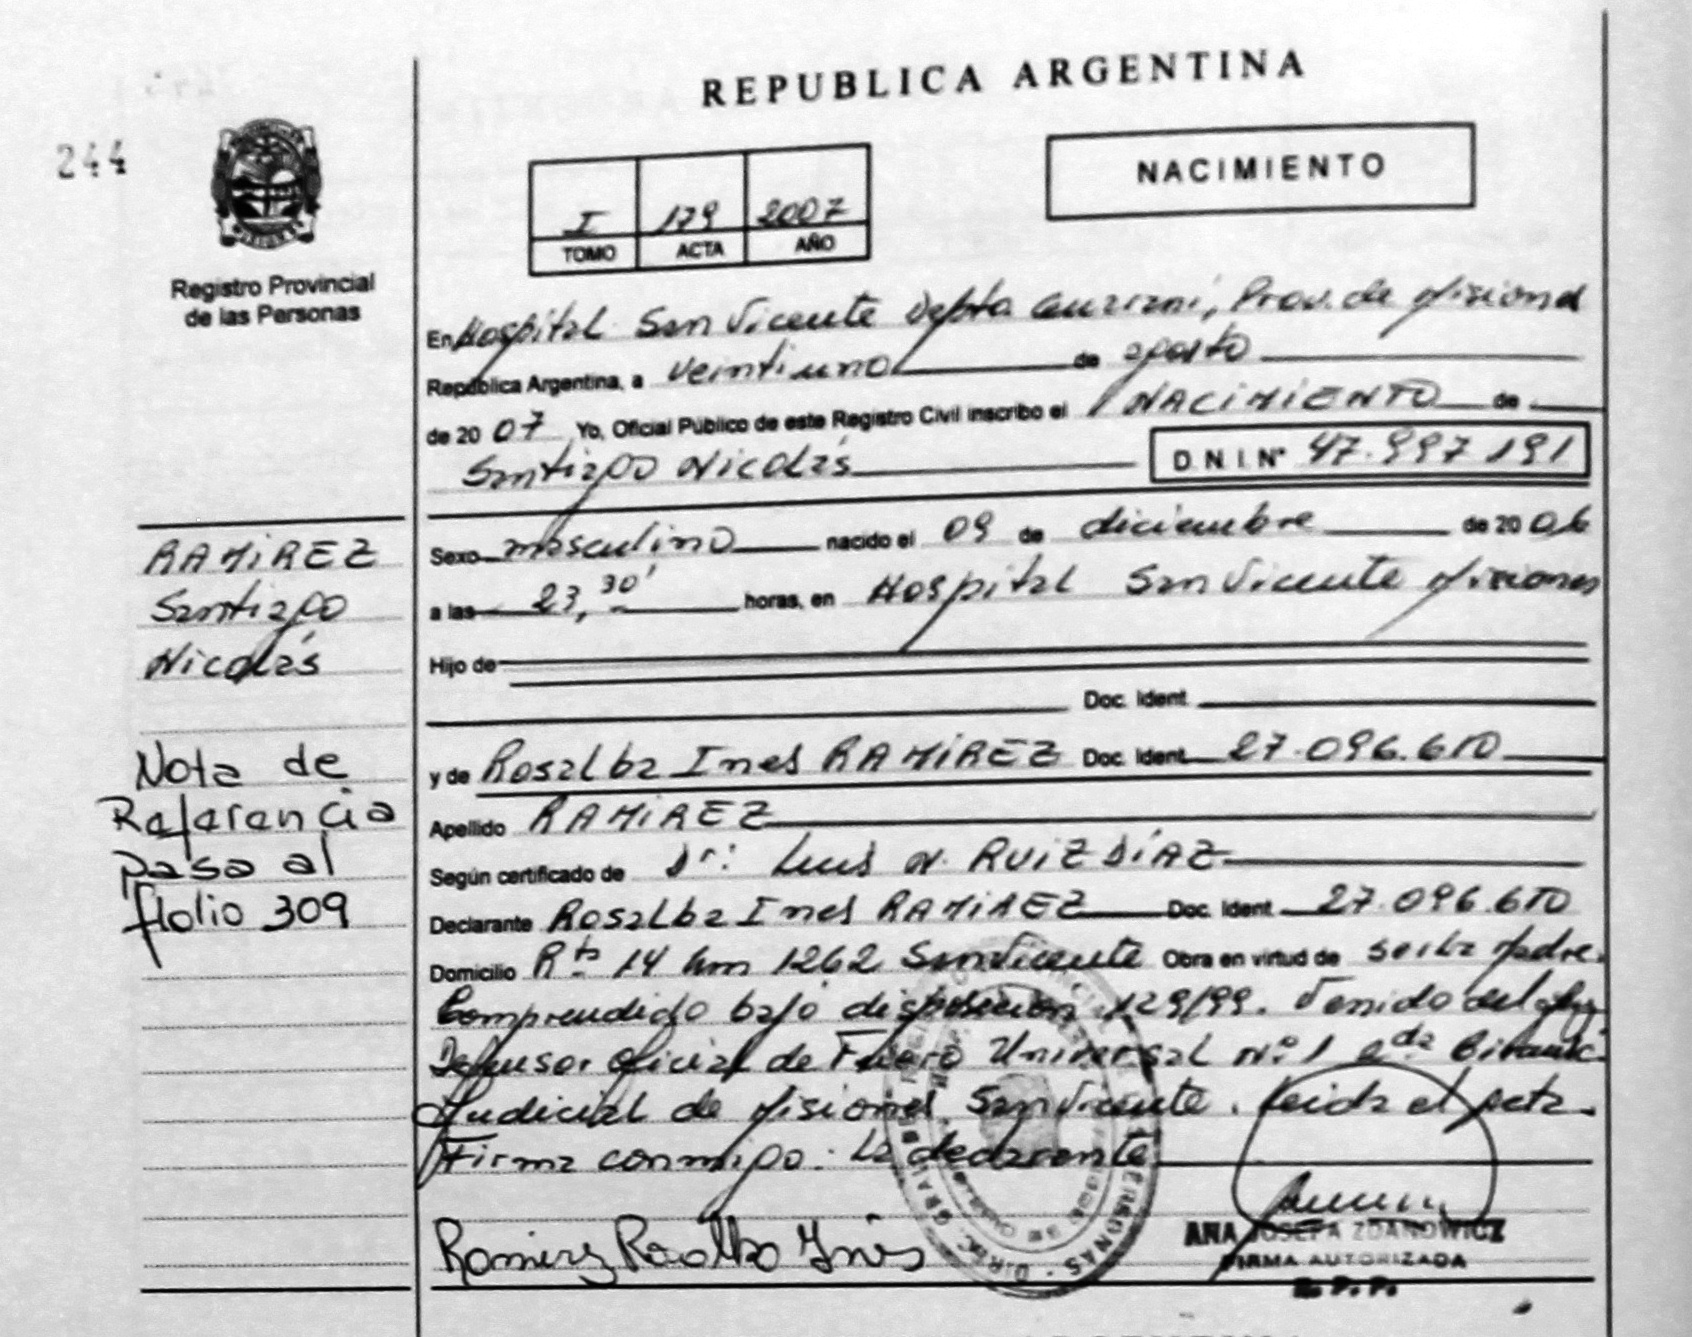 REPUBLICA ARGENTINA
244
NACIMIENTO
I 179 2007
TOMO ACTA AÑO
Registro Provincial
de las Personas
En Hospital San Vicente Depto Guaraní, Prov. de Misiones
República Argentina, a veintiuno de agosto
de 20 07 Yo, Oficial Público de este Registro Civil inscribo el NACIMIENTO de
Santiago Nicolás DNI Nº 47.997 191
RAMIREZ
Santiago
Nicolás
Sexo masculino nacido el 09 de diciembre de 20 06
a las 23,30' horas, en Hospital San Vicente Misiones
Hijo de
Doc. Ident.
Nota de
Referencia
pasa al
folio 309
y de Rosalba Ines RAMIREZ Doc. Ident. 27.096.610
Apellido RAMIREZ
Según certificado de Dr: Luis N. RUIZ DÍAZ
Declarante Rosalba Ines RAMIREZ Doc. Ident. 27.096.610
Domicilio Rta 14 km 1262 San Vicente Obra en virtud de ser la Madre.
Comprendido bajo disposición 129/99. Venido del
Defensor Oficial de Fuero Universal Nº 1 2da
Judicial de Misiones San Vicente. Leida el acta.
Firma conmigo: La declarante
Ramirez Rosalba Inés
ANA JOSEFA ZDANOWICZ
FIRMA AUTORIZADA
R. P. P.